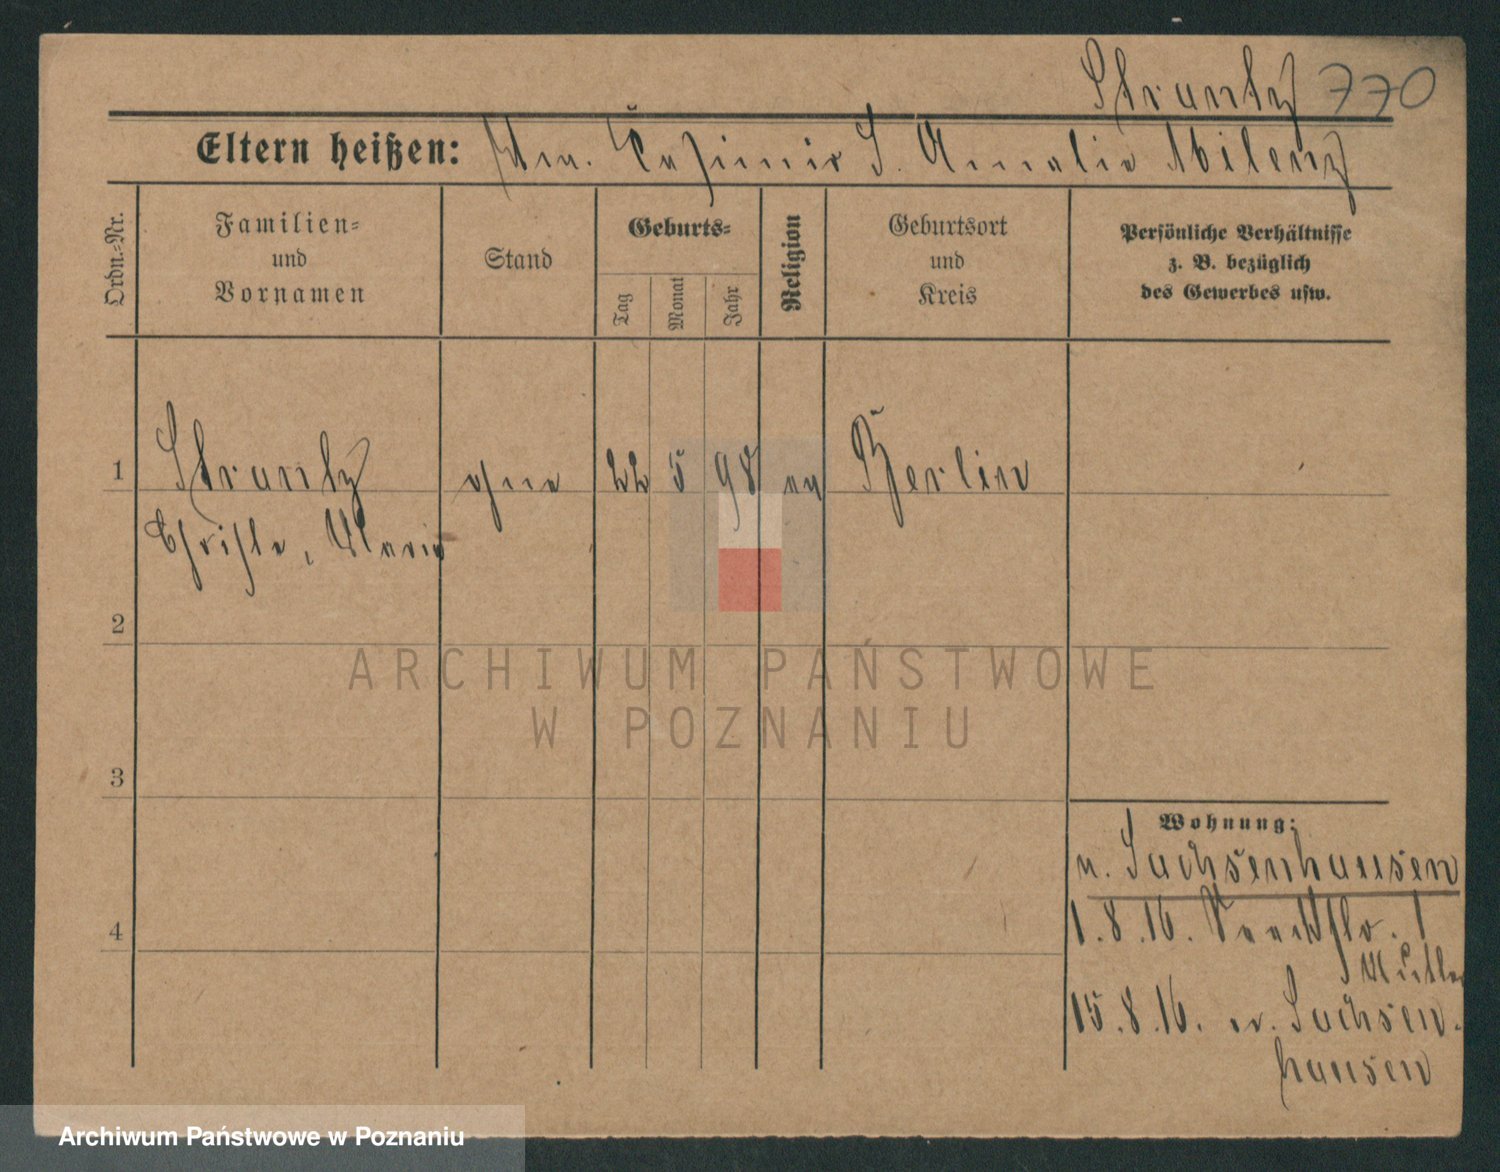 Strantz 770
Eltern heißen: Casimir Amalie Milenz
Ordn.-Nr.
Familien-
und
Vornamen
Stand
Geburts-
Tag
Monat
Jahr
Religion
Geburtsort
und
Kreis
Persönliche Verhältnisse
z. B. bezüglich
des Gewerbes usw.
1 Strantz ohne 22 5 98 ev Berlin
Christa, Maria
2
ARCHIWUM PAŃSTWOWE
W POZNANIU
3
Wohnung:
n. Sachsenhausen
4 1.8.16. 1
Mutter
15.8.16. Sachsen-
hausen
Archiwum Państwowe w Poznaniu